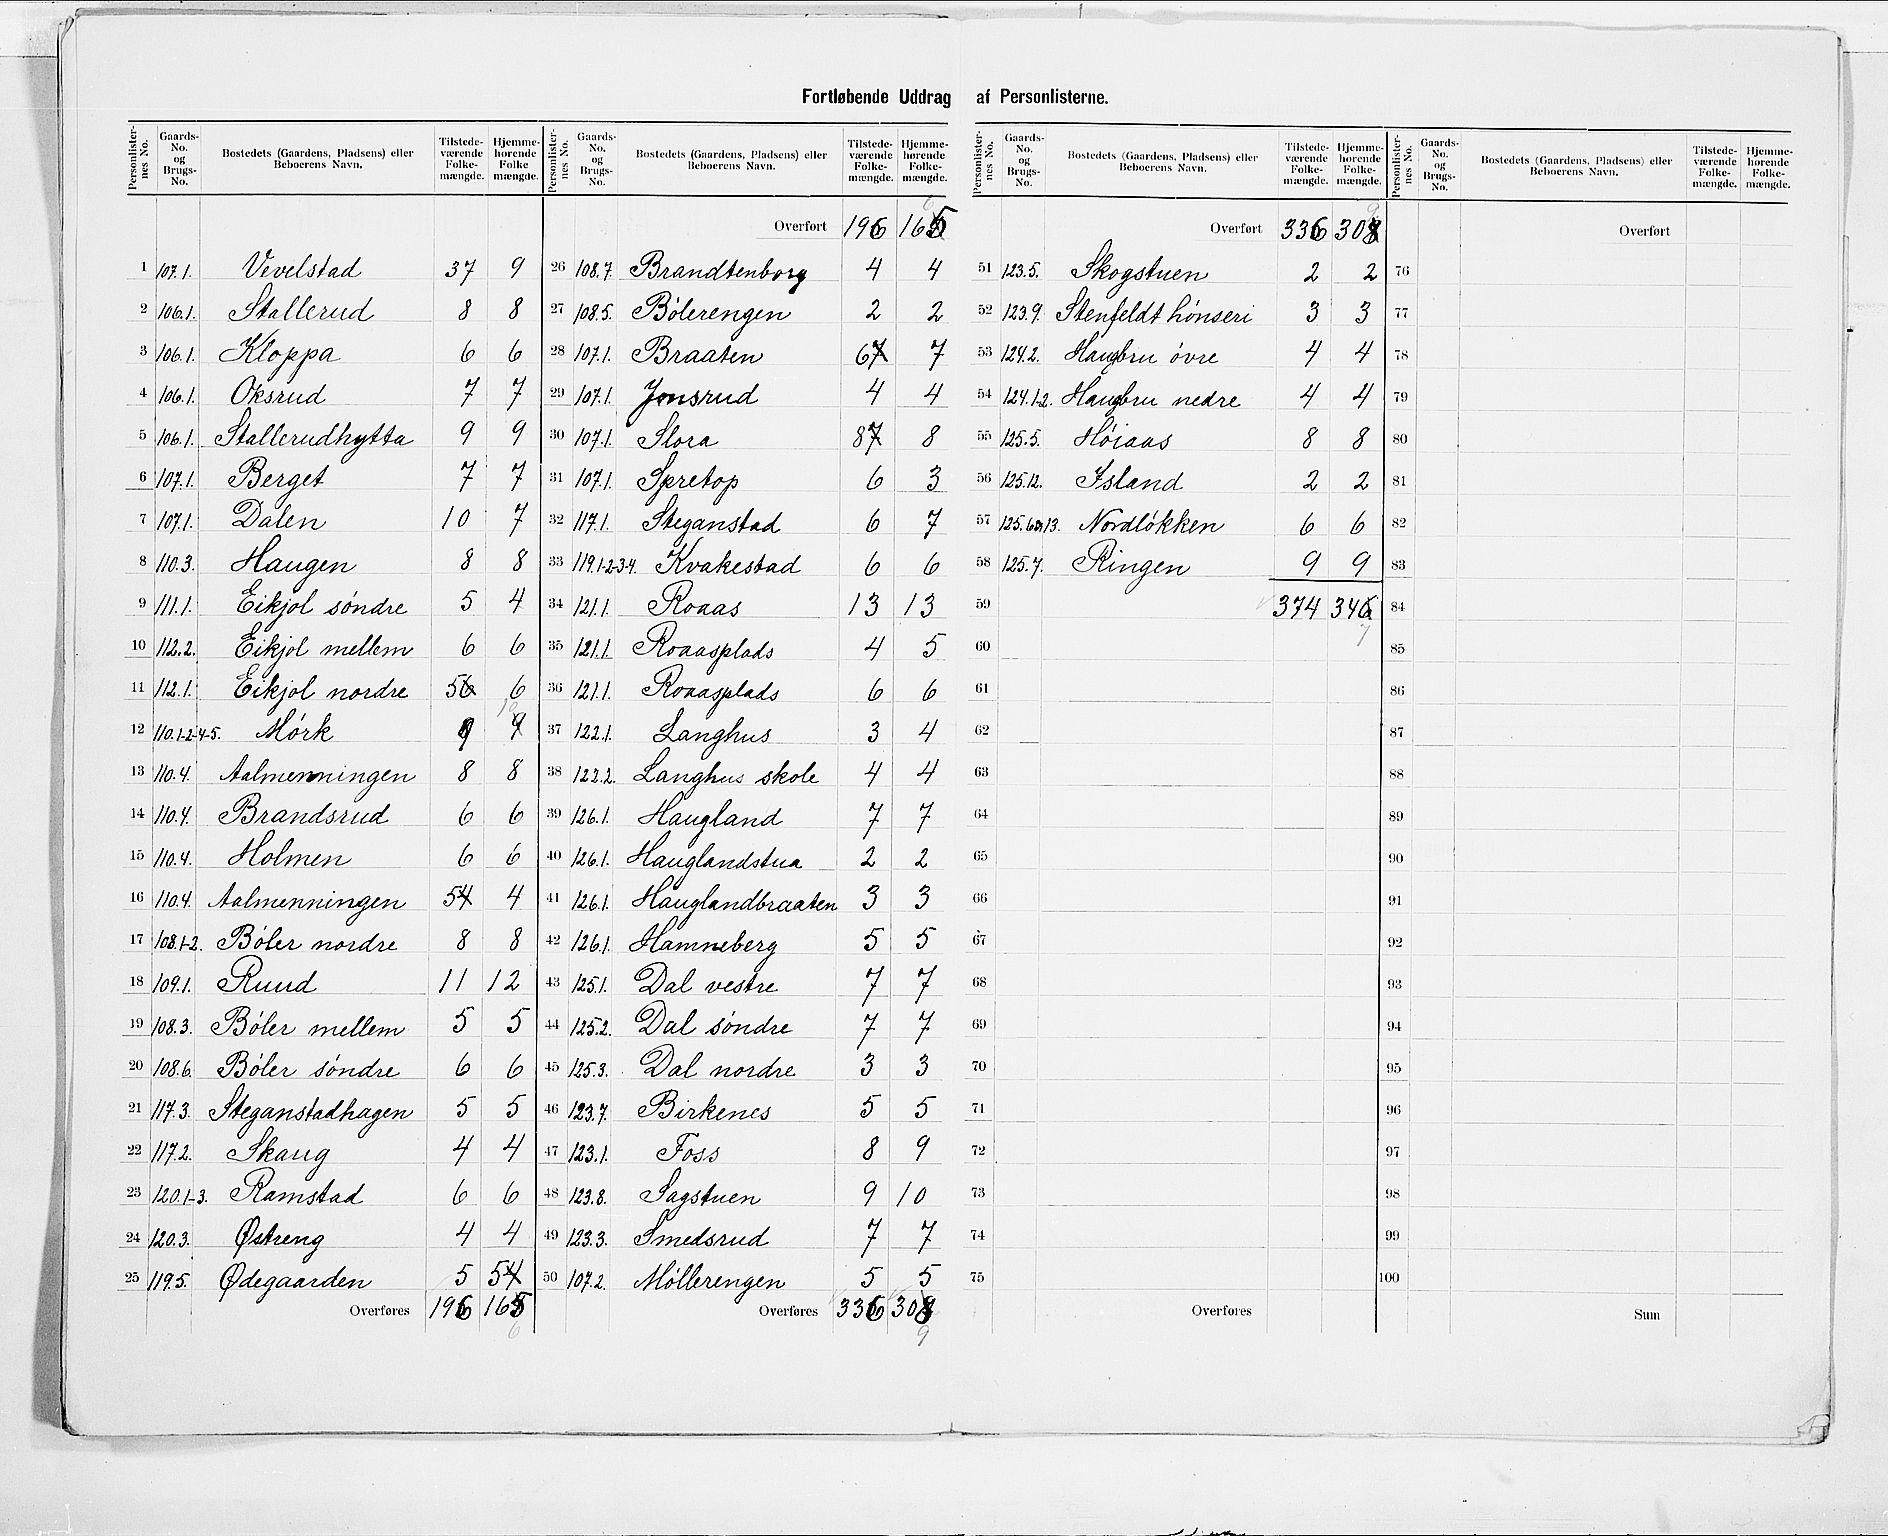 Fortløbende Uddrag af Personlisterne.
Personlisternes No. Gaards-No. og Brugs-No. Bostedets (Gaardens, Pladsens) eller Beboerens Navn. Tilstedeværende Folkemængde. Hjemmehørende Folkemængde.
1 107.1. Vevelstad 37 9
2 106.1. Stallerud 8 8
3 106.1. Kloppa 6 6
4 106.1. Oksrud 7 7
5 106.1. Stallerudhytta 9 9
6 107.1. Berget 7 7
7 107.1. Dalen 10 7
8 110.3. Haugen 8 8
9 111.1. Eikjol søndre 5 4
10 112.2. Eikjol mellem 6 6
11 112.1. Eikjol nordre 5 6 6
12 110.1-2-4-5. Mørk 9 9 10
13 110.4. Aalmenningen 8 8
14 110.4. Brandsrud 6 6
15 110.4. Holmen 6 6
16 110.4. Aalmenningen 5 4 4
17 108.1-2. Bøler nordre 8 8
18 109.1. Ruud 11 12
19 108.3. Bøler mellem 5 5
20 108.6. Bøler søndre 6 6
21 117.3. Steganstadhagen 5 5
22 117.2. Skaug 4 4
23 120.1-3. Ramstad 6 6
24 120.3. Østreng 4 4
25 119.5. Ødegaarden 5 5 4
Overføres 196 165
6
Personlisternes No. Gaards-No. og Brugs-No. Bostedets (Gaardens, Pladsens) eller Beboerens Navn. Tilstedeværende Folkemængde. Hjemmehørende Folkemængde.
6
Overført 196 165
26 108.7. Brandtenborg 4 4
27 108.5. Bølerengen 2 2
28 107.1. Braaten 6 7 7
29 107.1. Jonsrud 4 4
30 107.1. Slora 8 7 8
31 107.1. Spretop 6 3
32 117.1. Steganstad 6 7
33 119.1-2-3-4. Kvakestad 6 6
34 121.1. Roaas 13 13
35 121.1. Roaasplads 4 5
36 121.1. Roaasplads 6 6
37 122.1. Langhus 3 4
38 122.2. Langhus skole 4 4
39 126.1. Haugland 7 7
40 126.1. Hauglandstua 2 2
41 126.1. Hauglandbraaten 3 3
42 126.1. Hamneberg 5 5
43 125.1. Dal vestre 7 7
44 125.2. Dal søndre 7 7
45 125.3. Dal nordre 3 3
46 123.7. Birkenes 5 5
47 123.1. Foss 8 9
48 123.8. Sagstuen 9 10
49 123.3. Smedsrud 7 7
50 107.2. Møllerengen 5 5
Overføres 336 308
9
Personlisternes No. Gaards-No. og Brugs-No. Bostedets (Gaardens, Pladsens) eller Beboerens Navn. Tilstedeværende Folkemængde. Hjemmehørende Folkemængde.
9
Overført 336 308
51 123.5. Skogstuen 2 2
52 123.9. Stenfeldt hønseri 3 3
53 124.2. Haugbru øvre 4 4
54 124.1-2. Haugbru nedre 4 4
55 125.5. Høiaas 8 8
56 125.12. Island 2 2
57 125.6 13. Nordløkken 6 6
58 125.7. Ringen 9 9
59 374 346
7
60
61
62
63
64
65
66
67
68
69
70
71
72
73
74
75
Overføres
Personlisternes No. Gaards-No. og Brugs-No. Bostedets (Gaardens, Pladsens) eller Beboerens Navn. Tilstedeværende Folkemængde. Hjemmehørende Folkemængde.
Overført
76
77
78
79
80
81
82
83
84
85
86
87
88
89
90
91
92
93
94
95
96
97
98
99
100
Sum